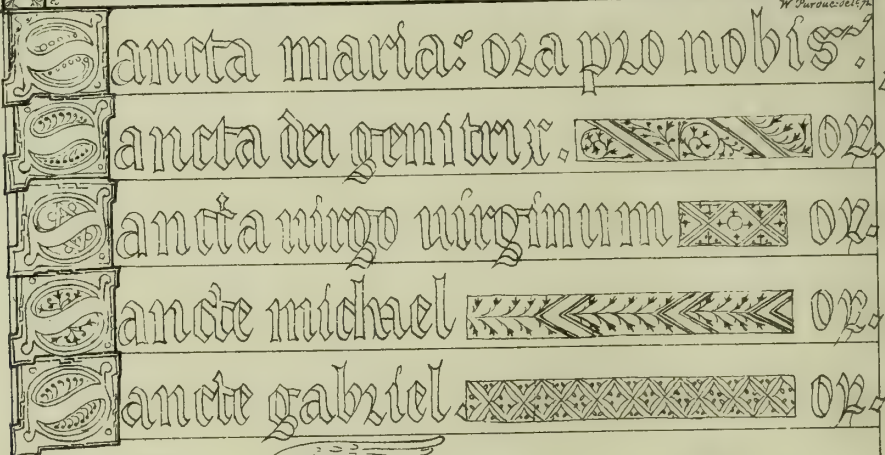 Sancta maria: ora pro nobis.
Sancta dei genitrix. or.
Sancta uirgo uirginum or.
Sancte michael or.
Sancte gabriel. or.